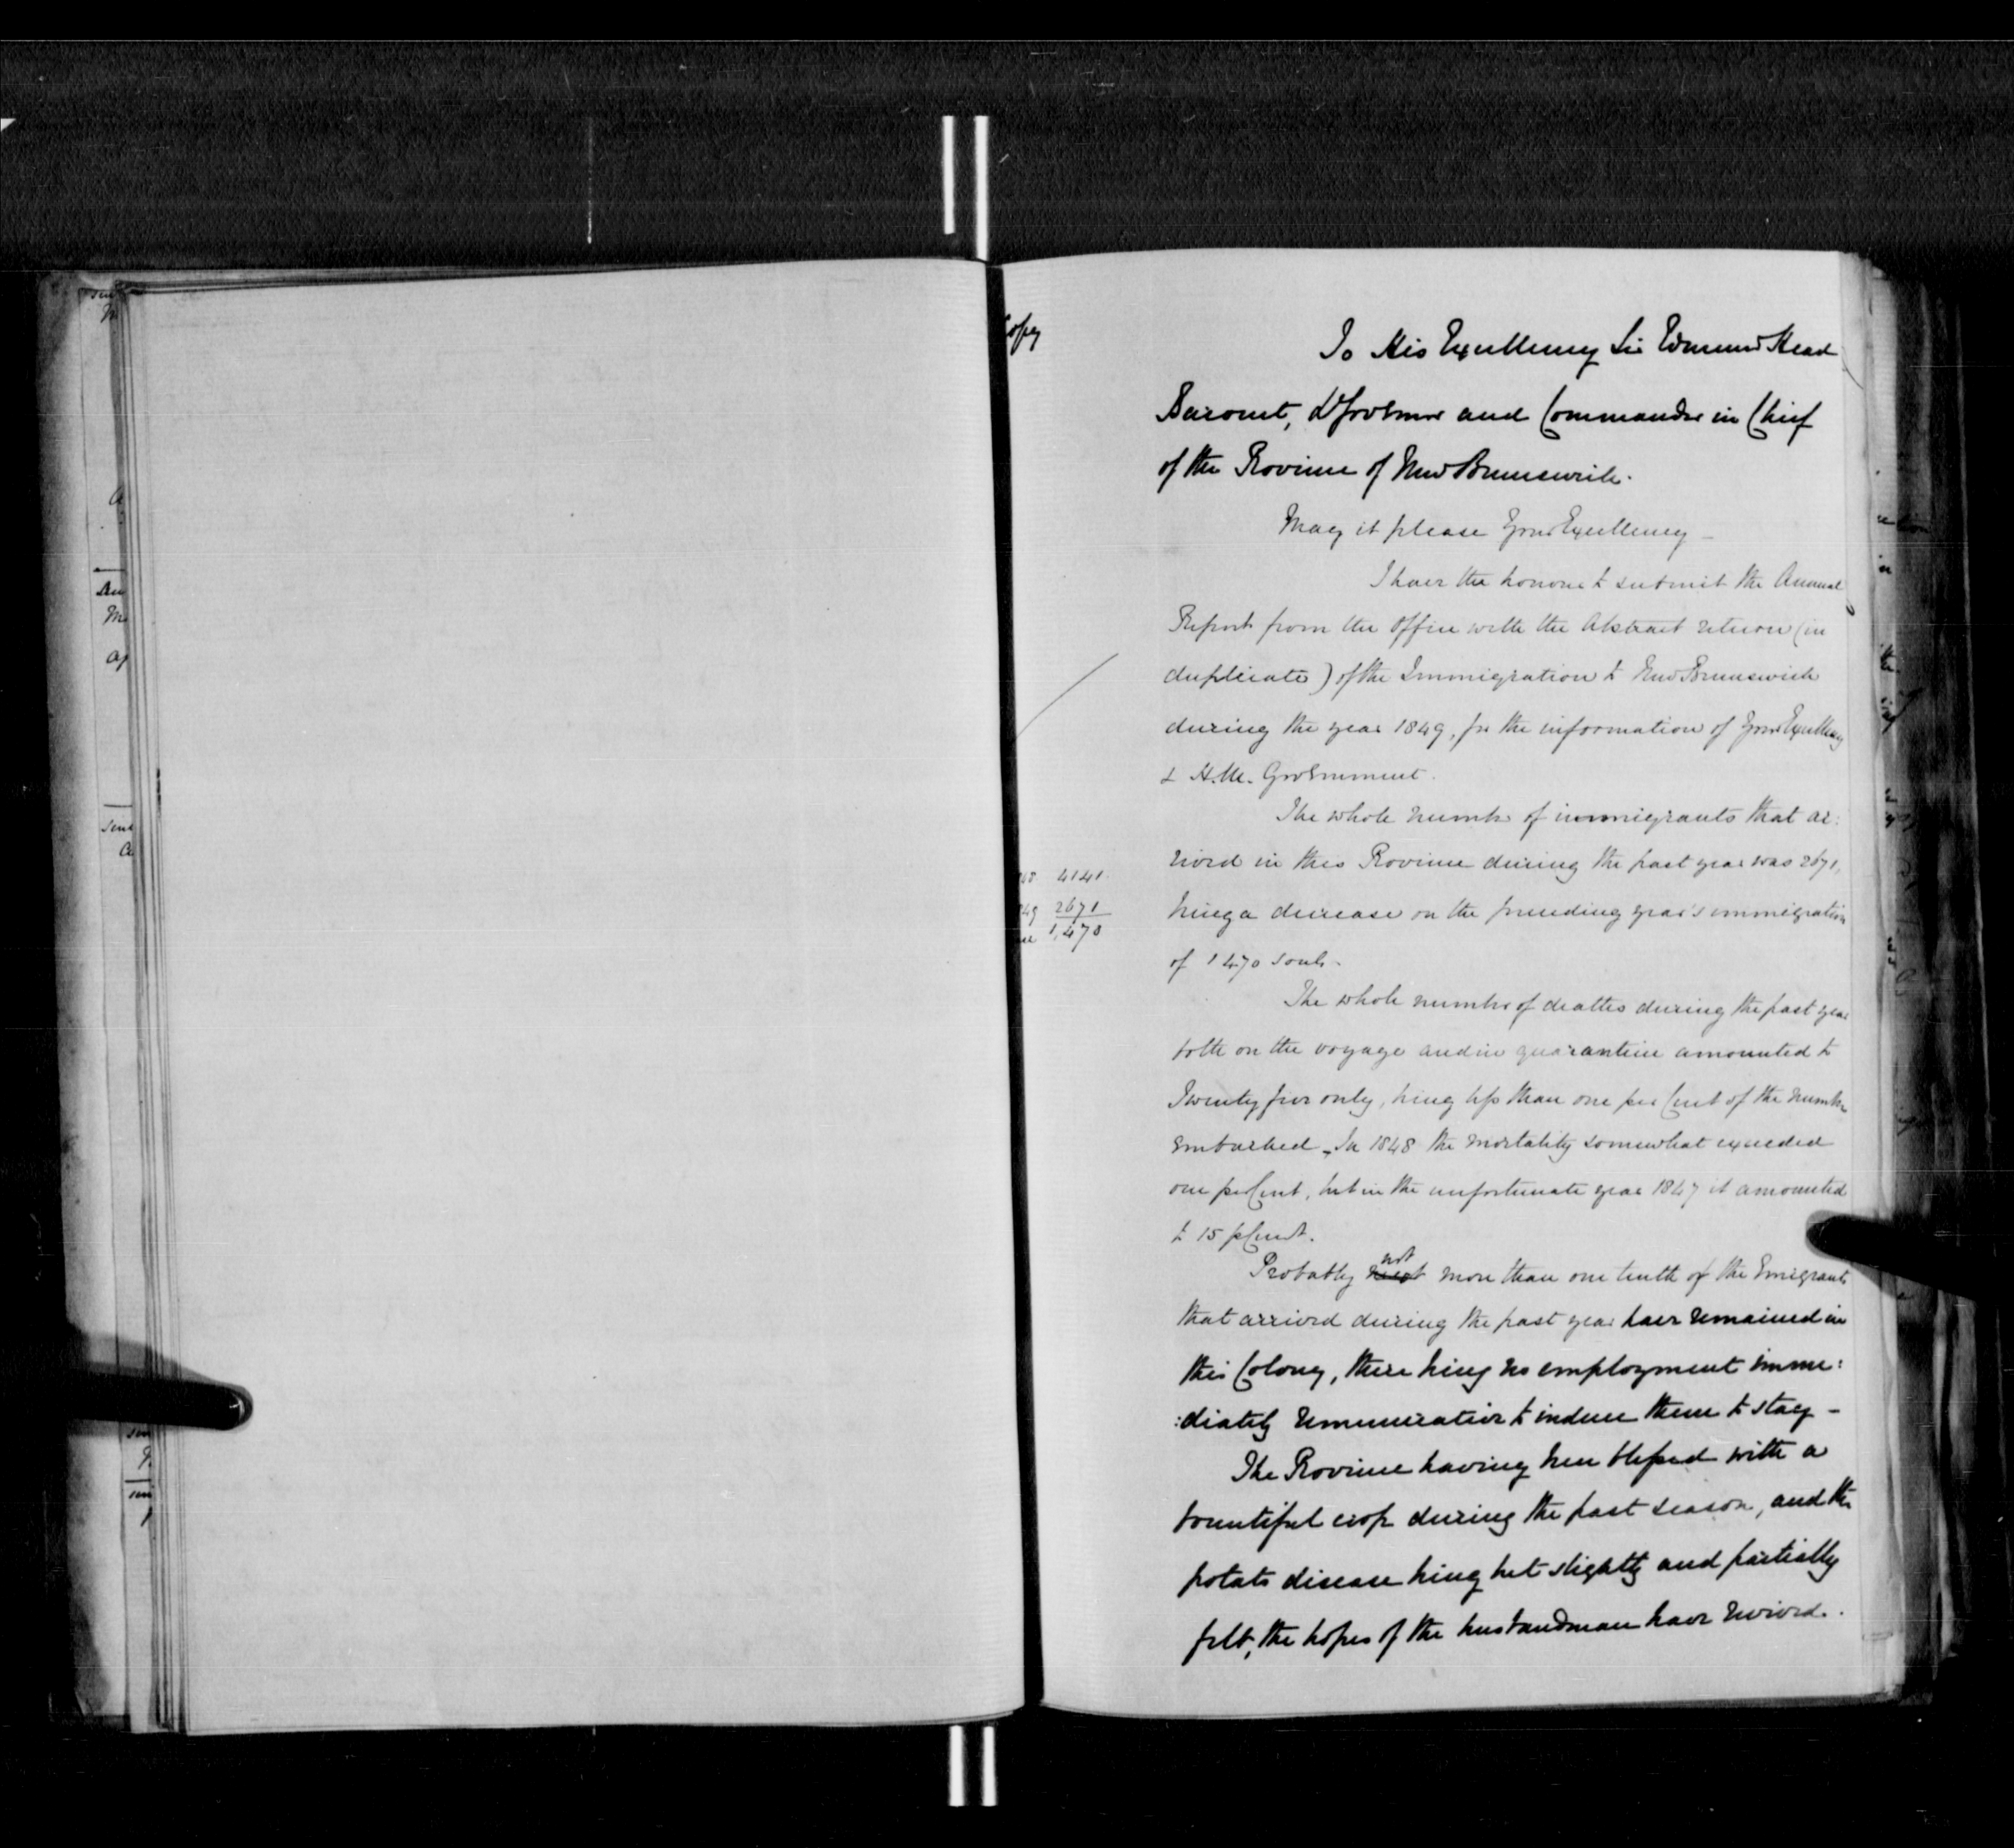 Copy
To His Excellency Sir Edmund Head
Baronet, Lt Governor and Commander in Chief
of the Province of New Brunswick.
May it please Your Excellency –
I have the honour to submit the Annual
Report from the Office with the Abstract return (in
duplicate) of the Immigration to New Brunswick
during the year 1849, for the information of Your Excellency
& H.M. Government.
The whole number of immigrants that ar:
rived in this Province during the past year was 2671,
being a decrease on the preceding year's immigration
of 1470 souls.
4141
49 2671
1,470
The whole number of deaths during the past year
both on the voyage and in quarantine amounted to
Twenty five only, being less than one per Cent of the number
embarked. In 1848 the mortality somewhat exceeded
one per Cent, but in the unfortunate year 1847 it amounted
to 15 p Cent.
Probably not more than one tenth of the Emigrants
that arrived during the past year have remained in
this Colony, there being no employment imme:
:diately remunerative to induce them to stay –
The Province having been blessed with a
bountiful crop during the past season, and the
potato disease being but slightly and partially
felt, the hopes of the husbandman have revived.